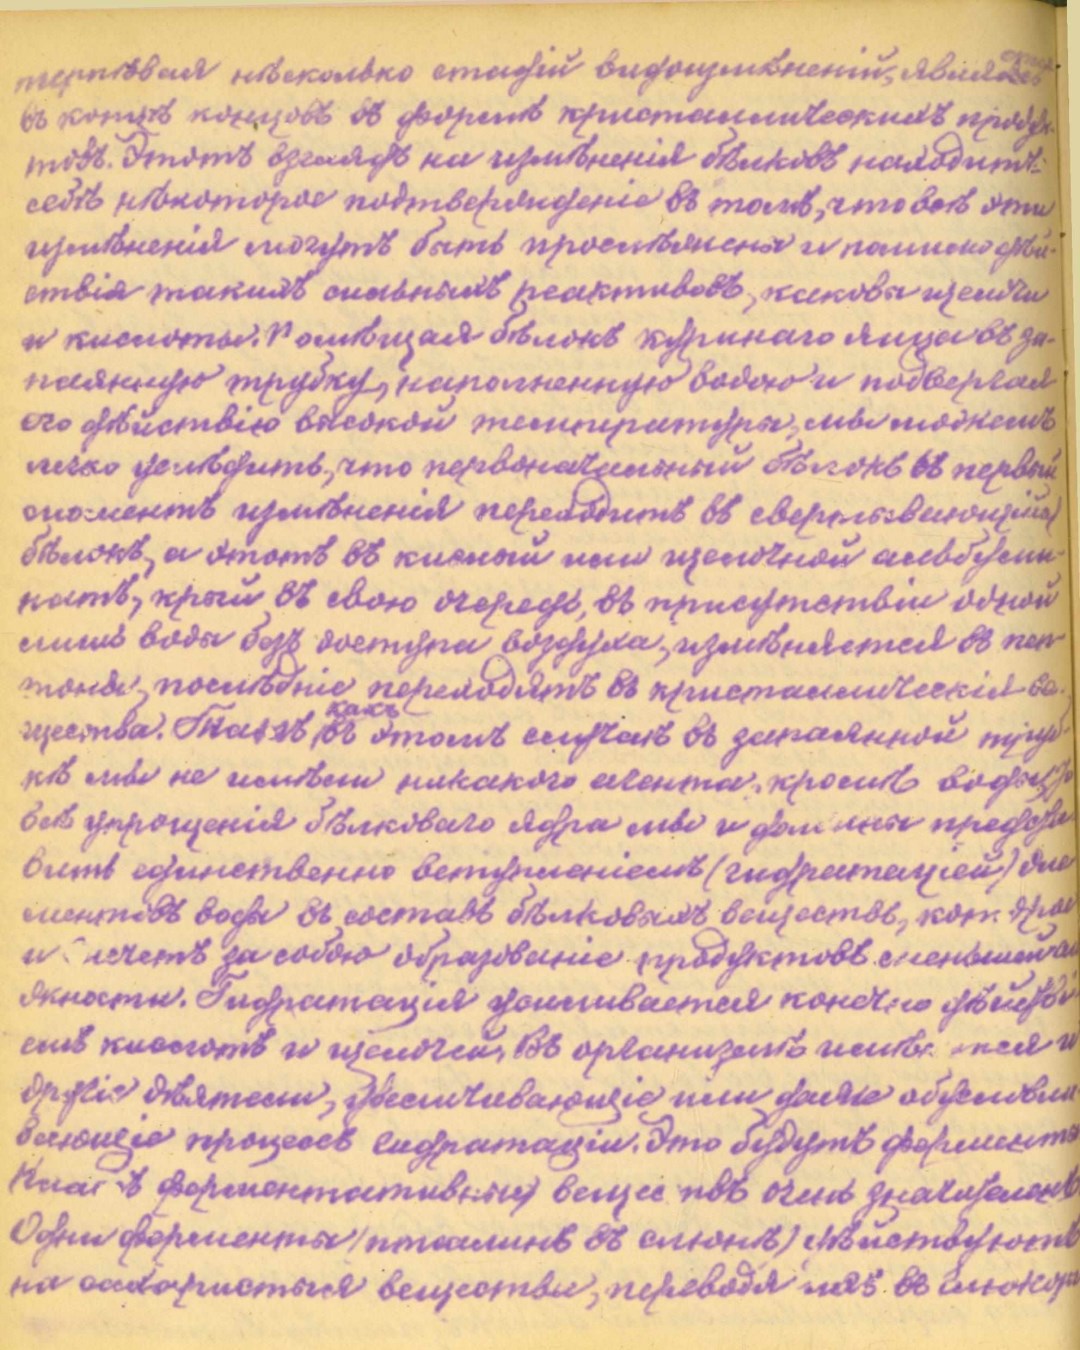 терпѣвая нѣсколько стадій видоизмѣненій, являясь
въ концѣ концовъ въ формѣ кристаллическихъ продук-
товъ. Этотъ взглядъ на измѣненія бѣлковъ находитъ
себѣ нѣкоторое подтвержденіе въ томъ, что всѣ эти
измѣненія могутъ быть прослѣжены и помимо дѣй-
ствія такихъ сильныхъ реактивовъ, каковы щелочи
и кислоты. Помѣщая бѣлокъ куринаго яйца въ за-
паянную трубку, наполненную водою и подвергая
его дѣйствію высокой температуры, мы можемъ
легко услѣдить, что первоначальный бѣлокъ въ первый
моментъ измѣненія переходитъ въ свертывающійся
бѣлокъ, а этотъ въ кислый или щелочной альбуми-
натъ, крый въ свою очередь, въ присутствіи одной
лишь воды безъ доступа воздуха, измѣняется въ пеп-
тоны, послѣдніе переходятъ въ кристаллическія ве-
щества. Такъ какъ въ этомъ случаѣ въ запаянной труб-
кѣ мы не имѣемъ никакого агента, кромѣ воды, то
всѣ упрощенія бѣлковаго ядра мы и должны предста-
вить единственно вступленіемъ (гидратаціей) эле
ментовъ воды въ составъ бѣлковыхъ веществъ,
и влечетъ за собою образованіе продуктовъ меньшей
Гидратація усиливается конечно дѣйстві-
емъ кислотъ и щелочей. Въ организмѣ имѣются и
другіе дѣятели, увеличивающіе или даже обусловли
вающіе процессъ гидратаціи. Это будутъ ферменты
Классъ ферментативныхъ веществъ очень значителенъ
Одни ферменты (птіалинъ въ слюнѣ) дѣйствуютъ
на сахаристыя вещества, переводя ихъ въ